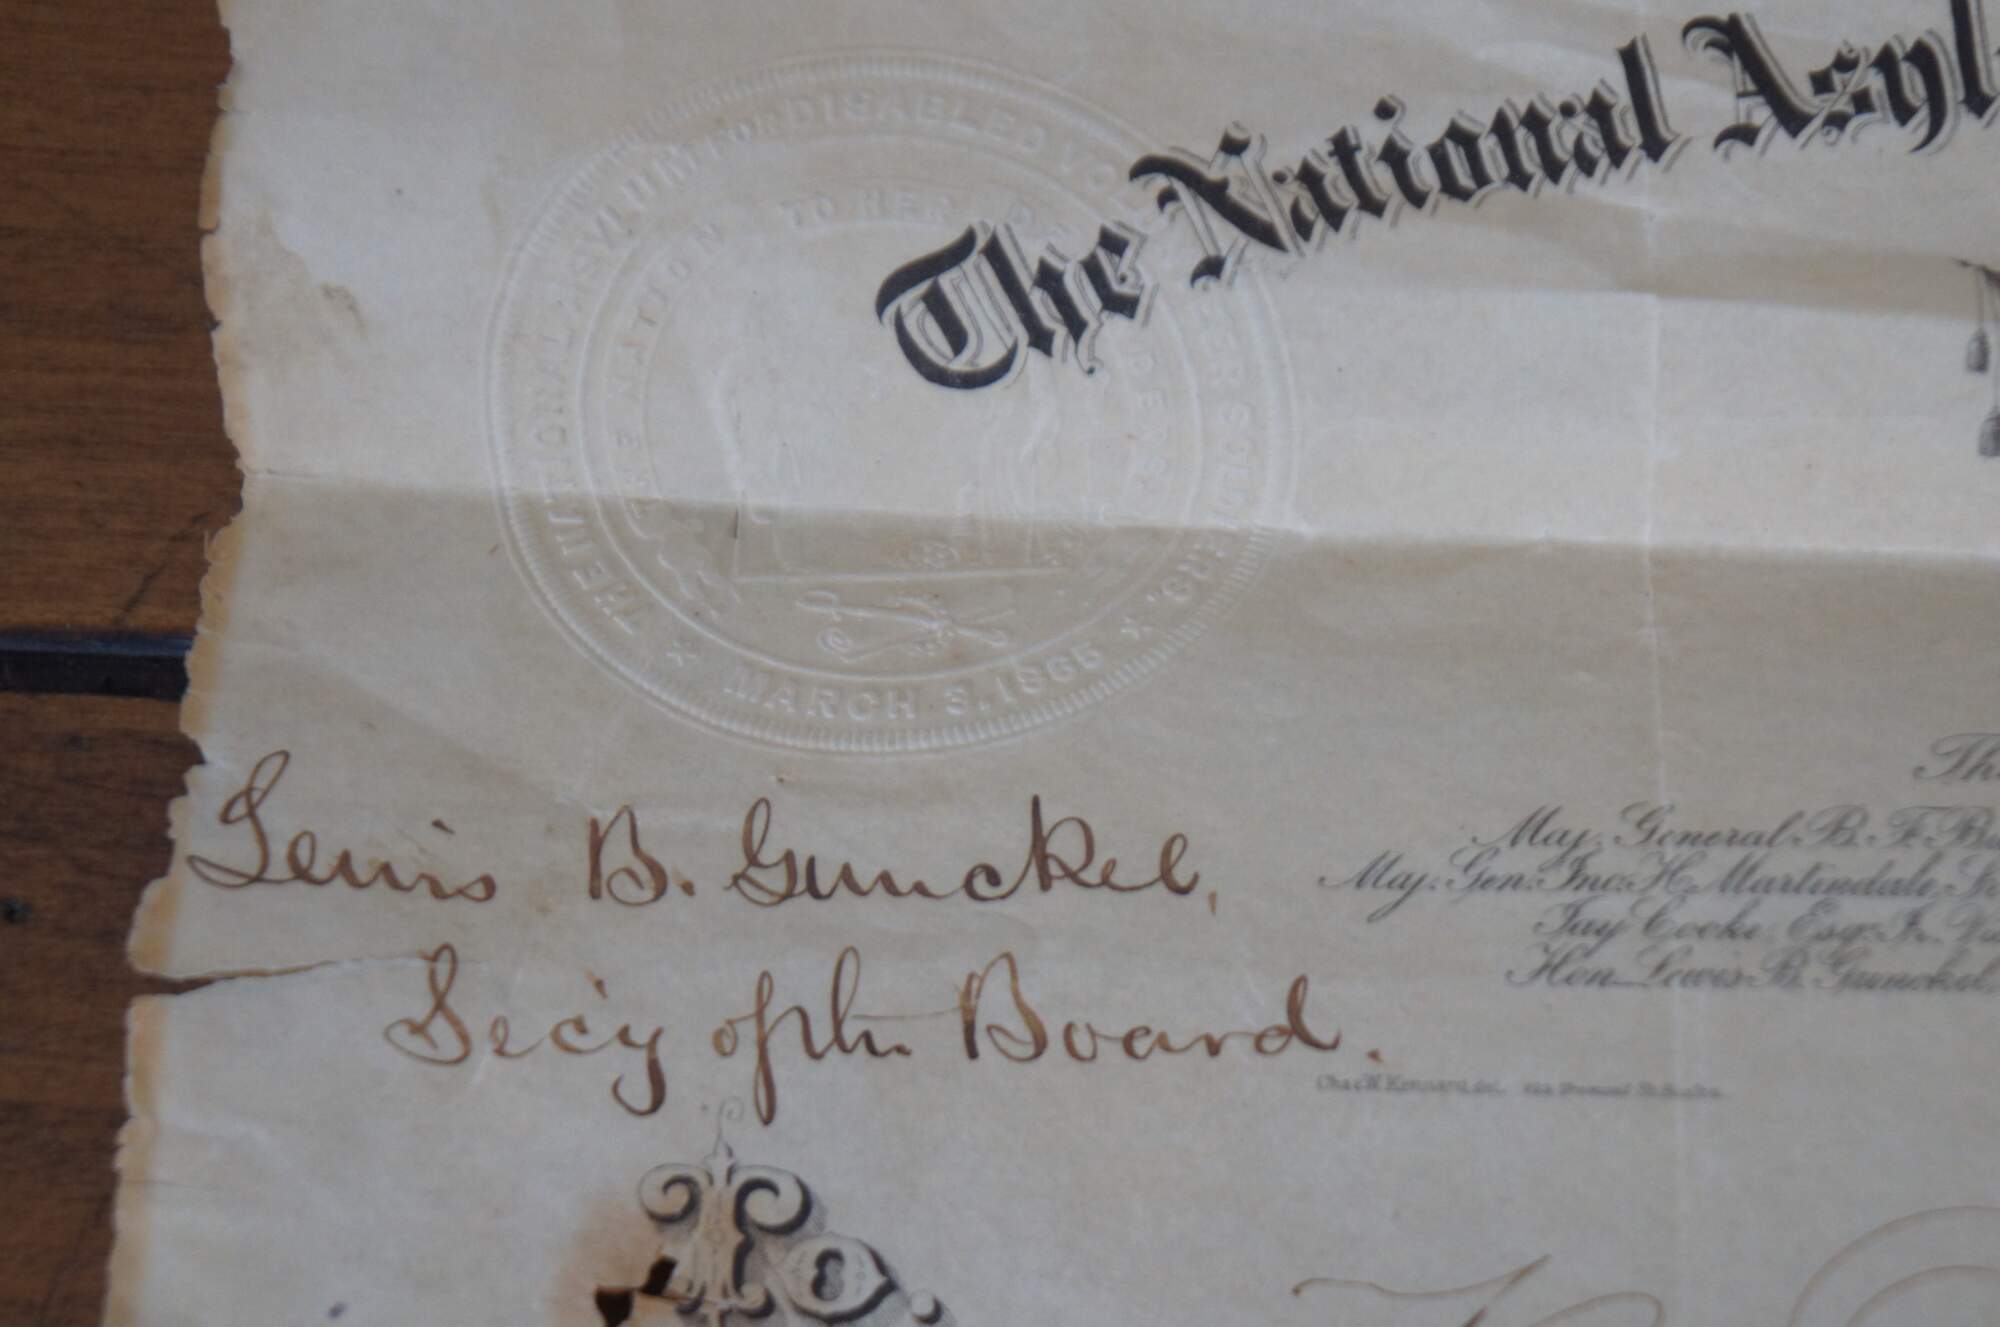 THE NATIONAL ASYLUM FOR DISABLED VOLUNTEER SOLDIERS.
THE NATION TO HER DEFENDERS
MARCH 3. 1865
The National Asyl
Lewis B. Gunckel,
Sec'y of the Board.
The
Maj. General B. F. Bu
Maj. Gen. Jno. H. Martindale
Jay Cooke, Esqr.
Hon. Lewis B. Gunckel,
To.